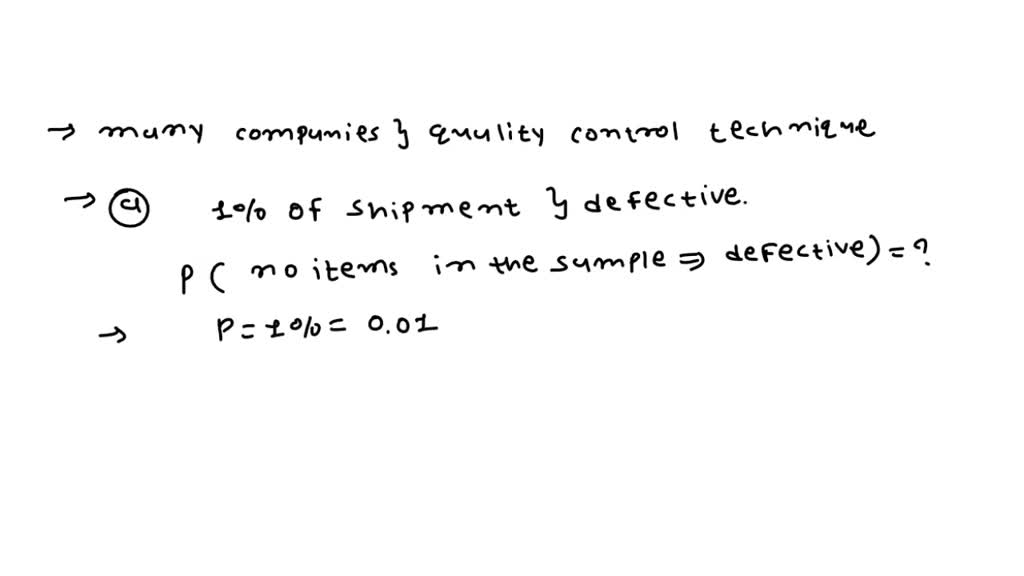 → many companies } quality control technique
→ ⓐ 1% of shipment } defective.
P ( no items in the sample ⇒ defective) = ?
→ P = 1% = 0.01